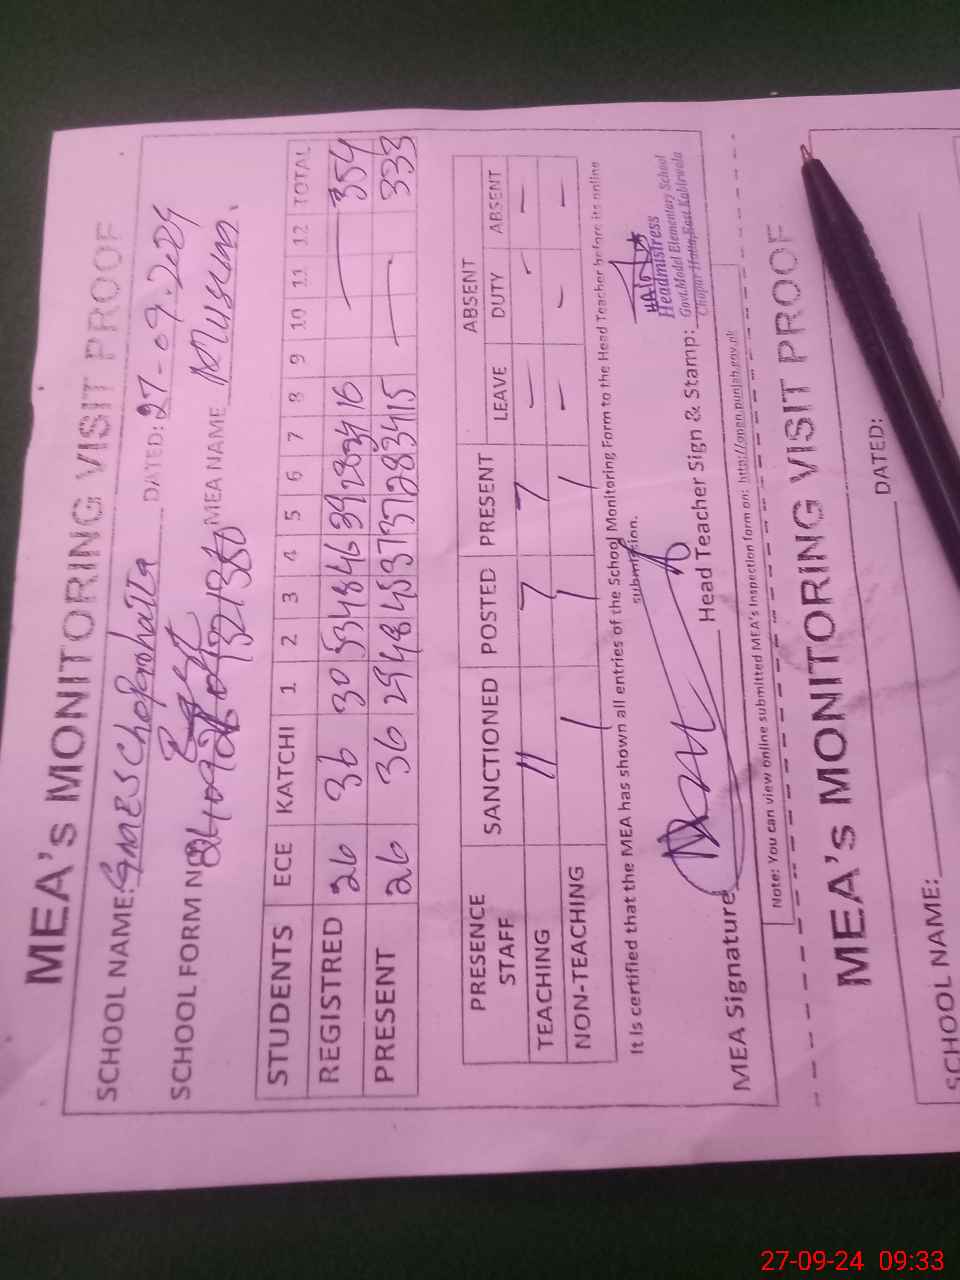 MEA's MONITORING VISIT PROOF
SCHOOL NAME: GMES Chopar hatta DATED: 27-09-2024
SCHOOL FORM NO MEA NAME
STUDENTS ECE KATCHI 1 2 3 4 5 6 7 8 9 10 11 12 TOTAL
REGISTRED 26 36 30 53 48 46 39 28 34 16 354
PRESENT 26 36 29 48 45 37 37 28 34 15 333
PRESENCE STAFF SANCTIONED POSTED PRESENT ABSENT
LEAVE DUTY ABSENT
TEACHING 11 7 7 — — —
NON-TEACHING 1 1 1 — — —
It Is certified that the MEA has shown all entries of the School Monitoring Form to the Head Teacher before its online
submission.
Headmistress
Govt.Model Elementary School
Chopar Hatta, East Kabirwala
MEA Signature Head Teacher Sign & Stamp:
Note: You can view online submitted MEA's Inspection form on: http://open.punjab.gov.pk
MEA's MONITORING VISIT PROOF
SCHOOL NAME: DATED:
27-09-24 09:33